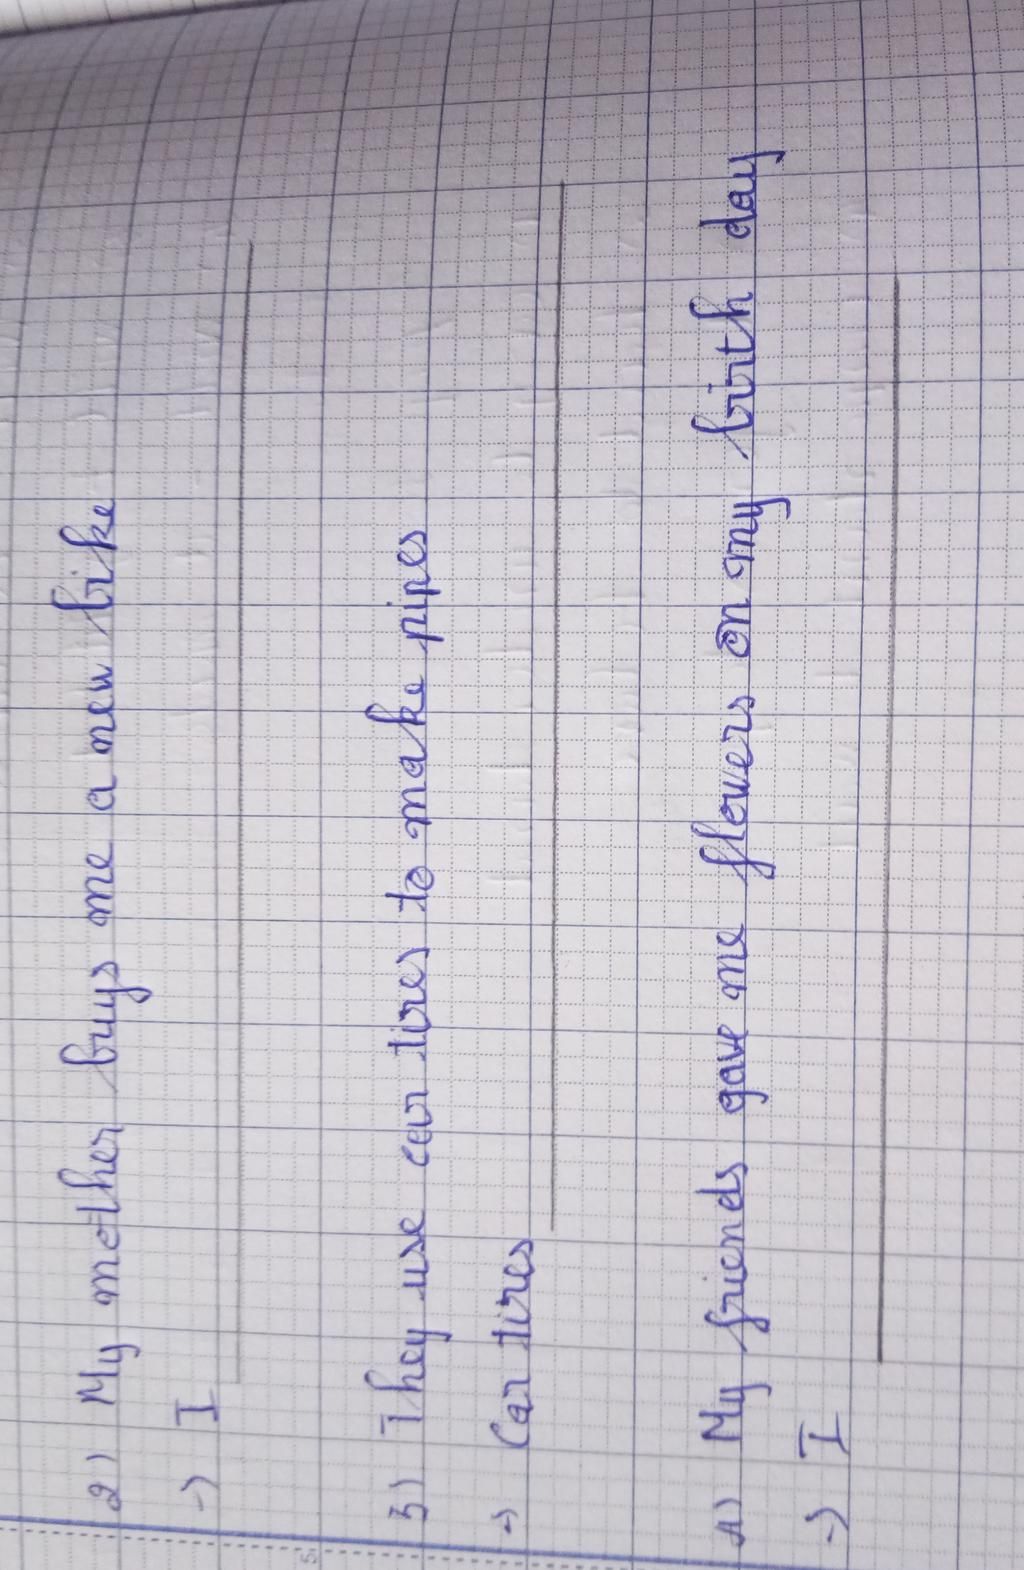 2) My mother buys me a new bike
→ I
3) They use car tires to make pipes
→ Car tires
4) My friends gave me flowers on my birth day
→ I